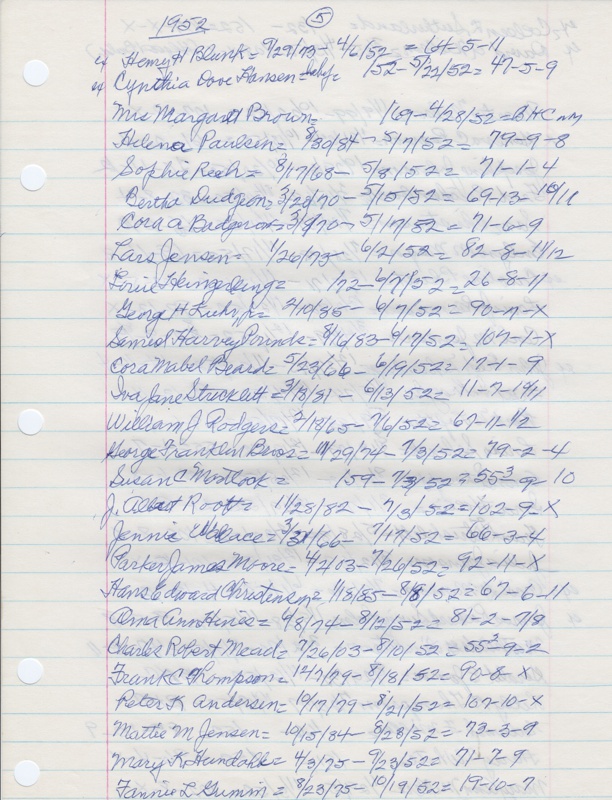 1952 5
4 Henry H Blunk = 9/29/73 - 4/6/52 = 64-5-11
4 Cynthia Dove Hansen = 152 - 5/22/52 = 47-5-9
Mrs Margaret Brown = 169 - 4/28/52 = BHC
Helena Paulsen = 8/30/84 - 5/7/52 = 79-9-8
Sophie Reeh = 8/17/68 - 5/8/52 = 71-1-4
Bertha Dudgeon = 3/28/70 - 5/15/52 = 69-13-10/11
Cora A Badgerow = 3/9/70 - 5/17/52 = 71-6-9
Lars Jensen = 1/26/75 - 6/2/52 = 82-8-11/12
/72 - 6/7/52 = 26-8-11
George H Luhr, Jr = 2/10/85 - 6/7/52 = 90-11-X
Samuel Harvey Pounds = 8/16/83 - 6/17/52 = 107-1-X
Cora Mabel Beard = 5/23/66 - 6/9/52 = 17-1-9
Iva Jane Stricklett = 3/18/81 - 6/13/52 = 11-7-10/11
William J Rodgers = 2/18/65 - 7/6/52 = 67-11-1/2
George Franklin = 11/29/74 - 7/3/52 = 79-2-4
Susan C = 159 - 7/3/52 = 55³-9-10
J. Albert Root = 11/28/82 - 7/3/52 = 102-9-X
Jennie Wallace = 3/31/66 - 7/17/52 = 66-3-4
Parker James Moore = 4/2/03 - 7/26/52 = 92-11-X
Hans Edward Christensen = 1/18/85 - 8/8/52 = 67-6-11
Oma Ann Hinds = 4/8/74 - 8/12/52 = 81-2-7/8
Charles Robert Mead = 7/26/03 - 8/10/52 = 55³-9-2
Frank C Thompson = 1/79 - 8/18/52 = 90-8-X
Peter K Andersen = 10/17/79 - 8/21/52 = 107-10-X
Mattie M Jensen = 10/15/84 - 8/28/52 = 73-3-9
Mary K Hundahl = 4/3/75 - 9/23/52 = 71-7-9
Fannie L Gummin = 8/23/75 - 10/19/52 = 19-10-7